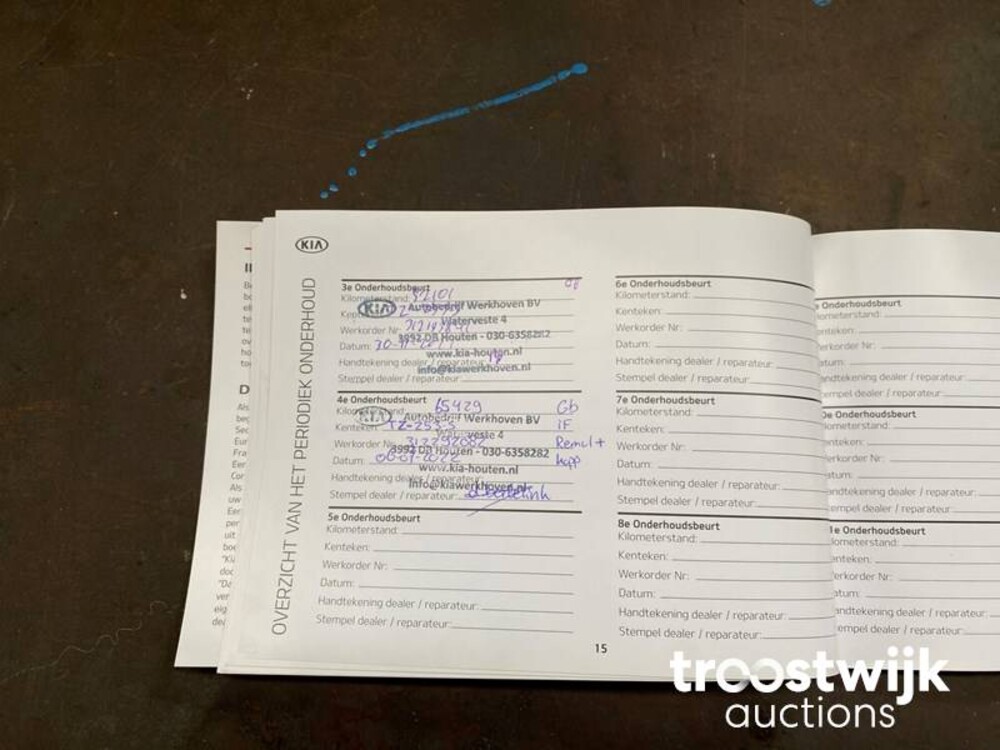 KIA
OVERZICHT VAN HET PERIODIEK ONDERHOUD
3e Onderhoudsbeurt
Kilometerstand:
KIA Autobedrijf Werkhoven BV
Waterveste 4
Werkorder Nr:
3992 DB Houten - 030-6358282
Datum: 30-11-
www.kia-houten.nl
Handtekening dealer / reparateur:
info@kiawerkhoven.nl
Stempel dealer / reparateur:
4e Onderhoudsbeurt
Kilometerstand: 65429 Gb
KIA Autobedrijf Werkhoven BV
Kenteken: TZ-253-S iF
Waterveste 4
Werkorder Nr: Remul +
3992 DB Houten - 030-6358282
Datum: 06-07-2022
www.kia-houten.nl
Handtekening dealer / reparateur:
info@kiawerkhoven.nl
Stempel dealer / reparateur:
5e Onderhoudsbeurt
Kilometerstand:
Kenteken:
Werkorder Nr:
Datum:
Handtekening dealer / reparateur:
Stempel dealer / reparateur:
6e Onderhoudsbeurt
Kilometerstand:
Kenteken:
Werkorder Nr:
Datum:
Handtekening dealer / reparateur:
Stempel dealer / reparateur:
7e Onderhoudsbeurt
Kilometerstand:
Kenteken:
Werkorder Nr:
Datum:
Handtekening dealer / reparateur:
Stempel dealer / reparateur:
8e Onderhoudsbeurt
Kilometerstand:
Kenteken:
Werkorder Nr:
Datum:
Handtekening dealer / reparateur:
Stempel dealer / reparateur:
15
e Onderhoudsbeurt
lometerstand:
enteken:
erkorder Nr:
atum:
andtekening dealer / reparateur:
empel dealer / reparateur:
0e Onderhoudsbeurt
lometerstand:
enteken:
erkorder Nr:
atum:
andtekening dealer / reparateur:
empel dealer / reparateur:
1e Onderhoudsbeurt
lometerstand:
enteken:
erkorder Nr:
atum:
andtekening dealer / reparateur:
empel dealer / reparateur:
troostwijk
auctions